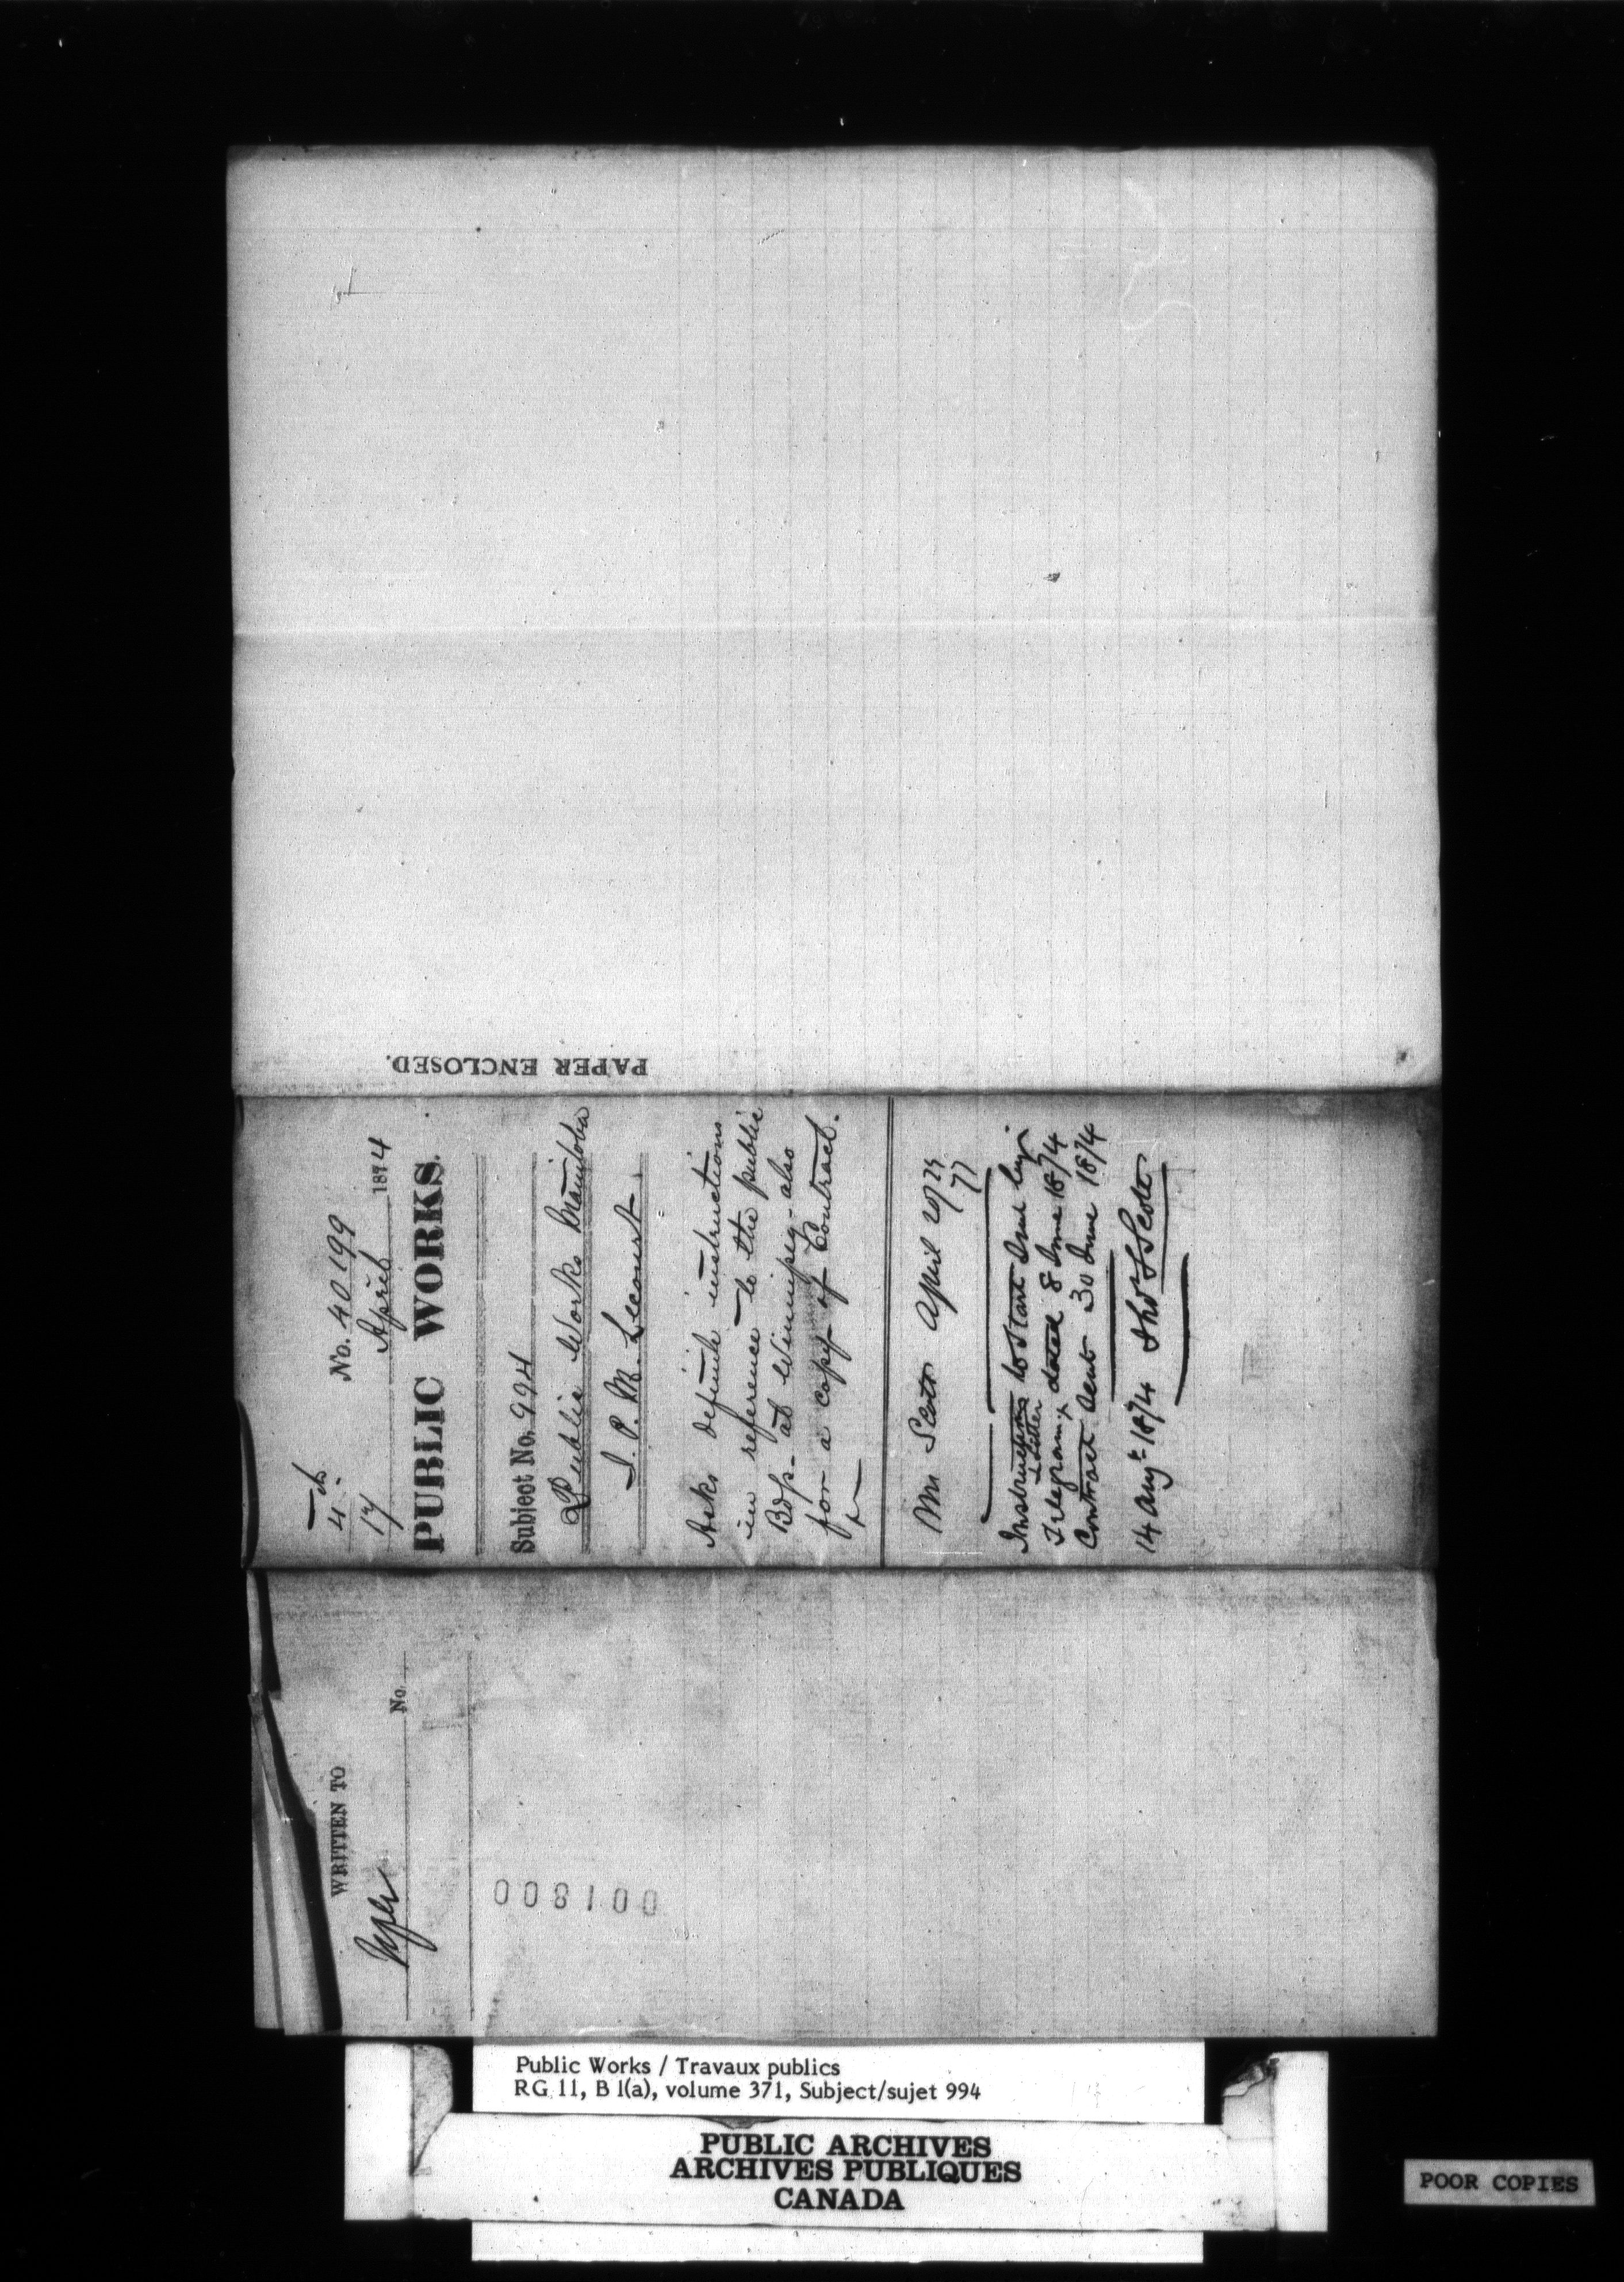 PAPER ENCLOSED.
No. 40199
17 April 1874
PUBLIC WORKS.
Subject No. 994
Public Works Manitoba
J. P. M. Lecourt
Asks definite instructions
in reference to the public
Bdgs at Winnipeg - also
for a copy of Contract.
Mr Scott April 20/74
77
Instructions to Start
& Letter
Telegram dated 8 June 1874
Contract Sent 30 June 1874
14 Augt 1874 Thos S Scott
WRITTEN TO
No.
001800
Public Works / Travaux publics
RG 11, B 1(a), volume 371, Subject/sujet 994
PUBLIC ARCHIVES
ARCHIVES PUBLIQUES
CANADA
POOR COPIES